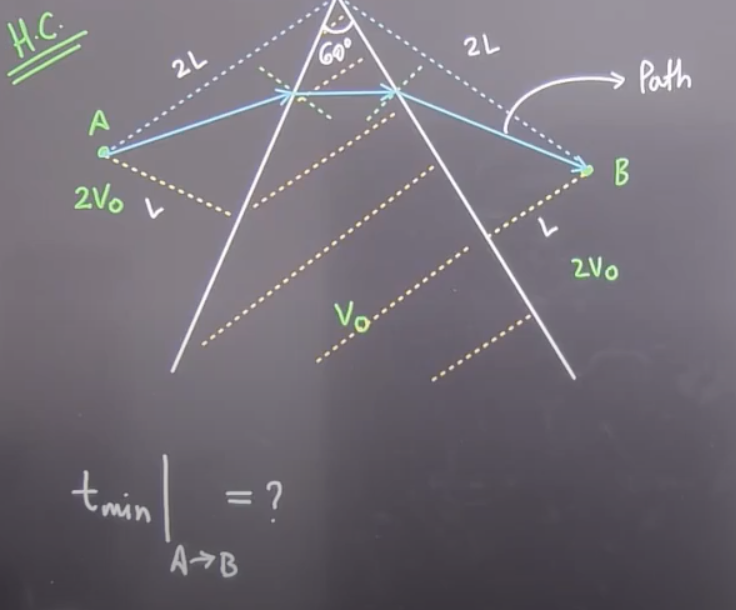 H.C.
2L
60°
2L
Path
A
B
2V₀
L
L
2V₀
V₀
tmin | = ?
A→B